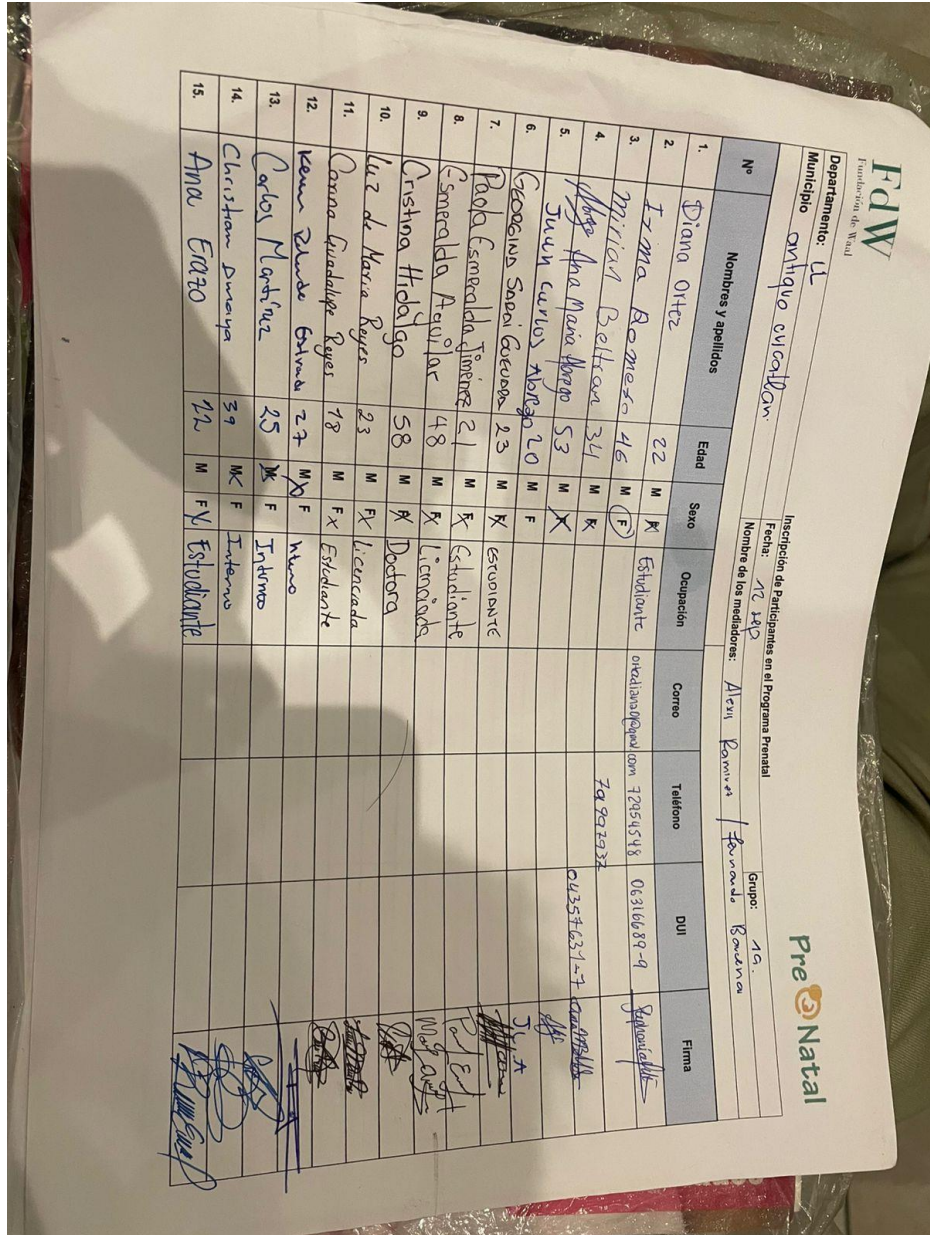 FdW
Fundación de Waal
Pre Natal
Inscripción de Participantes en el Programa Prenatal
Departamento: LL
Fecha: 12 sep
Grupo: 19.
Municipio antiguo cuscatlan.
Nombre de los mediadores: Alexis Ramirez / Fernando Barrena
Nº Nombres y apellidos Edad Sexo Ocupación Correo Teléfono DUI Firma
1. Diana Ortez 22 M F Estudiante 72954548 06316689-9
2. Irma Romero 46 M F 79992932
3. Mirian Beltran 34 M F
4. Ana Maria Abrego 53 M F
5. Juan Carlos 20 M F J A
6. Georgina Sarai 23 M F ESTUDIANTE
7. Paola Esmeralda Jiménez 21 M F Estudiante
8. Esmeralda Aguilar 48 M F Licenciada
9. Cristina Hidalgo 58 M F Doctora
10. Luz de Maria Reyes 23 M F Licenciada
11. Guadalupe Reyes 18 M F Estudiante
12. 27 M F
13. Carlos Martínez 25 M F Interno
14. Christian Amaya 39 M F Interno
15. Ana Erazo 22 M F Estudiante